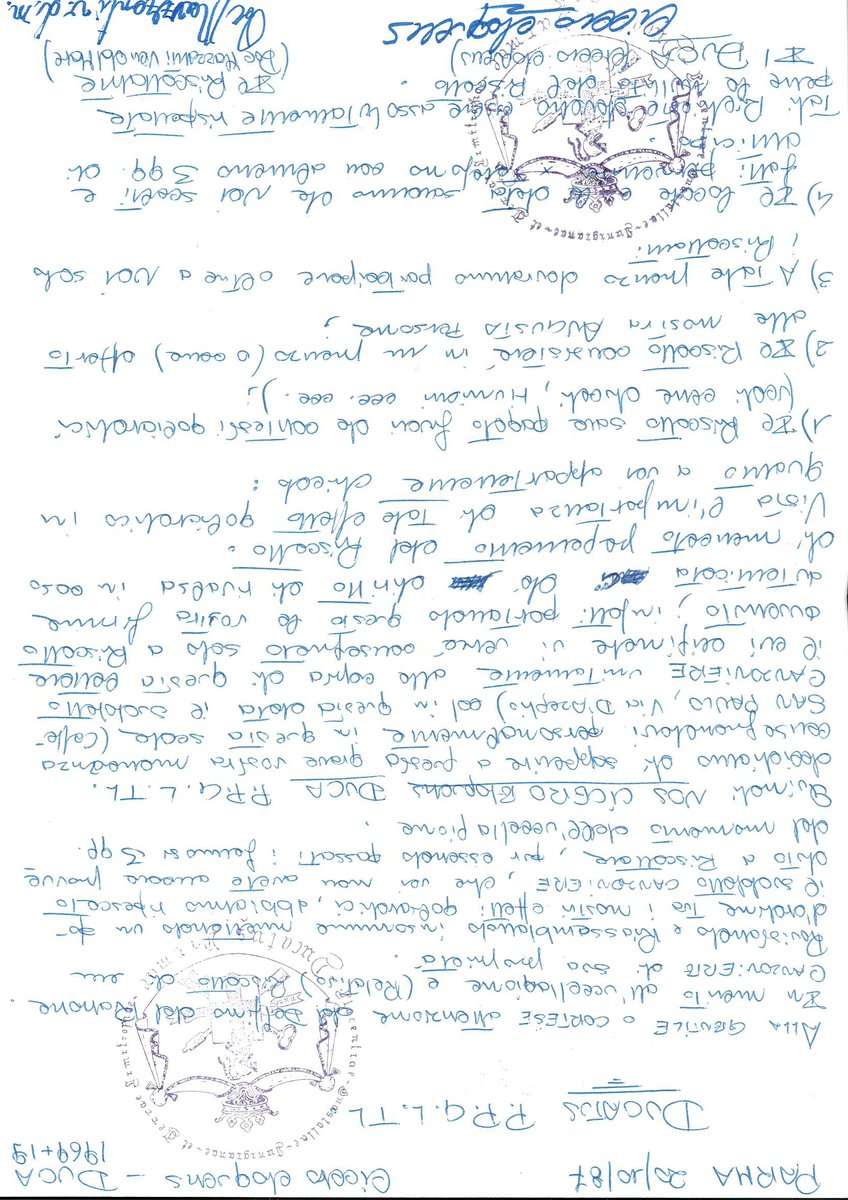 PARMA 20/10/87 Cicero eloquens - DUCA
1969+19
DUCATUS P.P.G.L.TL
ALLA GENTILE O CORTESE attenzione del Delfino del Ranone.
In merito all'uccellagione e (Relativo) Riscatto di un
CANZONIERE di sua proprietà.
Rovistando e Riassemblando insomma mettendo un po'
d'ordine tra i nostri effetti goliardici, abbiamo ripescato
il suddetto CANZONIERE, che voi non avete ancora provve
duto a Riscattare, pur essendo passati i famosi 3 gg.
dal momento dell'uccellagione.
Quindi NOS CICERO Eloquens DUCA P.P.G.L.TL.
decidiamo di sopperire a questa grave vostra mancanza
consegnandovi personalmente in questa sede (Caffè-
SAN PAOLO, Via D'Azeglio) ed in questa data il suddetto
CANZONIERE unitamente alla copia di questa lettera
il cui originale vi verrà consegnato solo a Riscatto
avvenuto; infatti portando questo la vostra firma
autenticata dà diritto di rivalsa in caso
di mancato pagamento del Riscatto.
Vista l'importanza di Tale effetto goliardico in
quanto a voi appartenente chiedo:
1) Il Riscatto sarà pagato fuori da contesti goliardici
(vedi cene ducali, Hunioni ecc. ecc.);
2) Il Riscatto consisterà in un pranzo (o cena) offerto
alla nostra AUGUSTA Persona;
3) A Tale pranzo dovranno partecipare oltre a Voi solo
i Riscattanti
4) Il luogo e la data saranno da Voi scelti e
fatti pervenire x telefono con almeno 3 gg. di
anticipo.
Tali Richieste devono essere assolutamente rispettate
pena la nullità del Riscatto.
Il DUCA (Cicero eloquens) Il Riscattante
Cicero eloquens